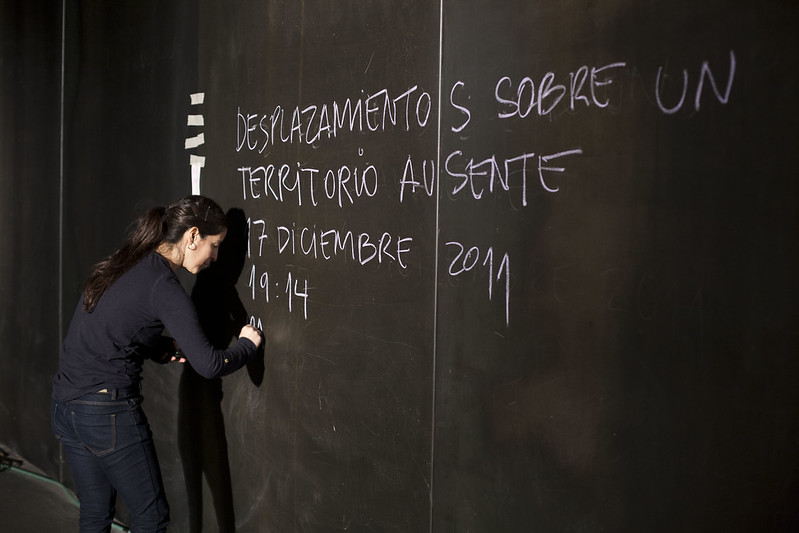 DESPLAZAMIENTOS SOBRE UN
TERRITORIO AUSENTE
17 DICIEMBRE 2011
19:14